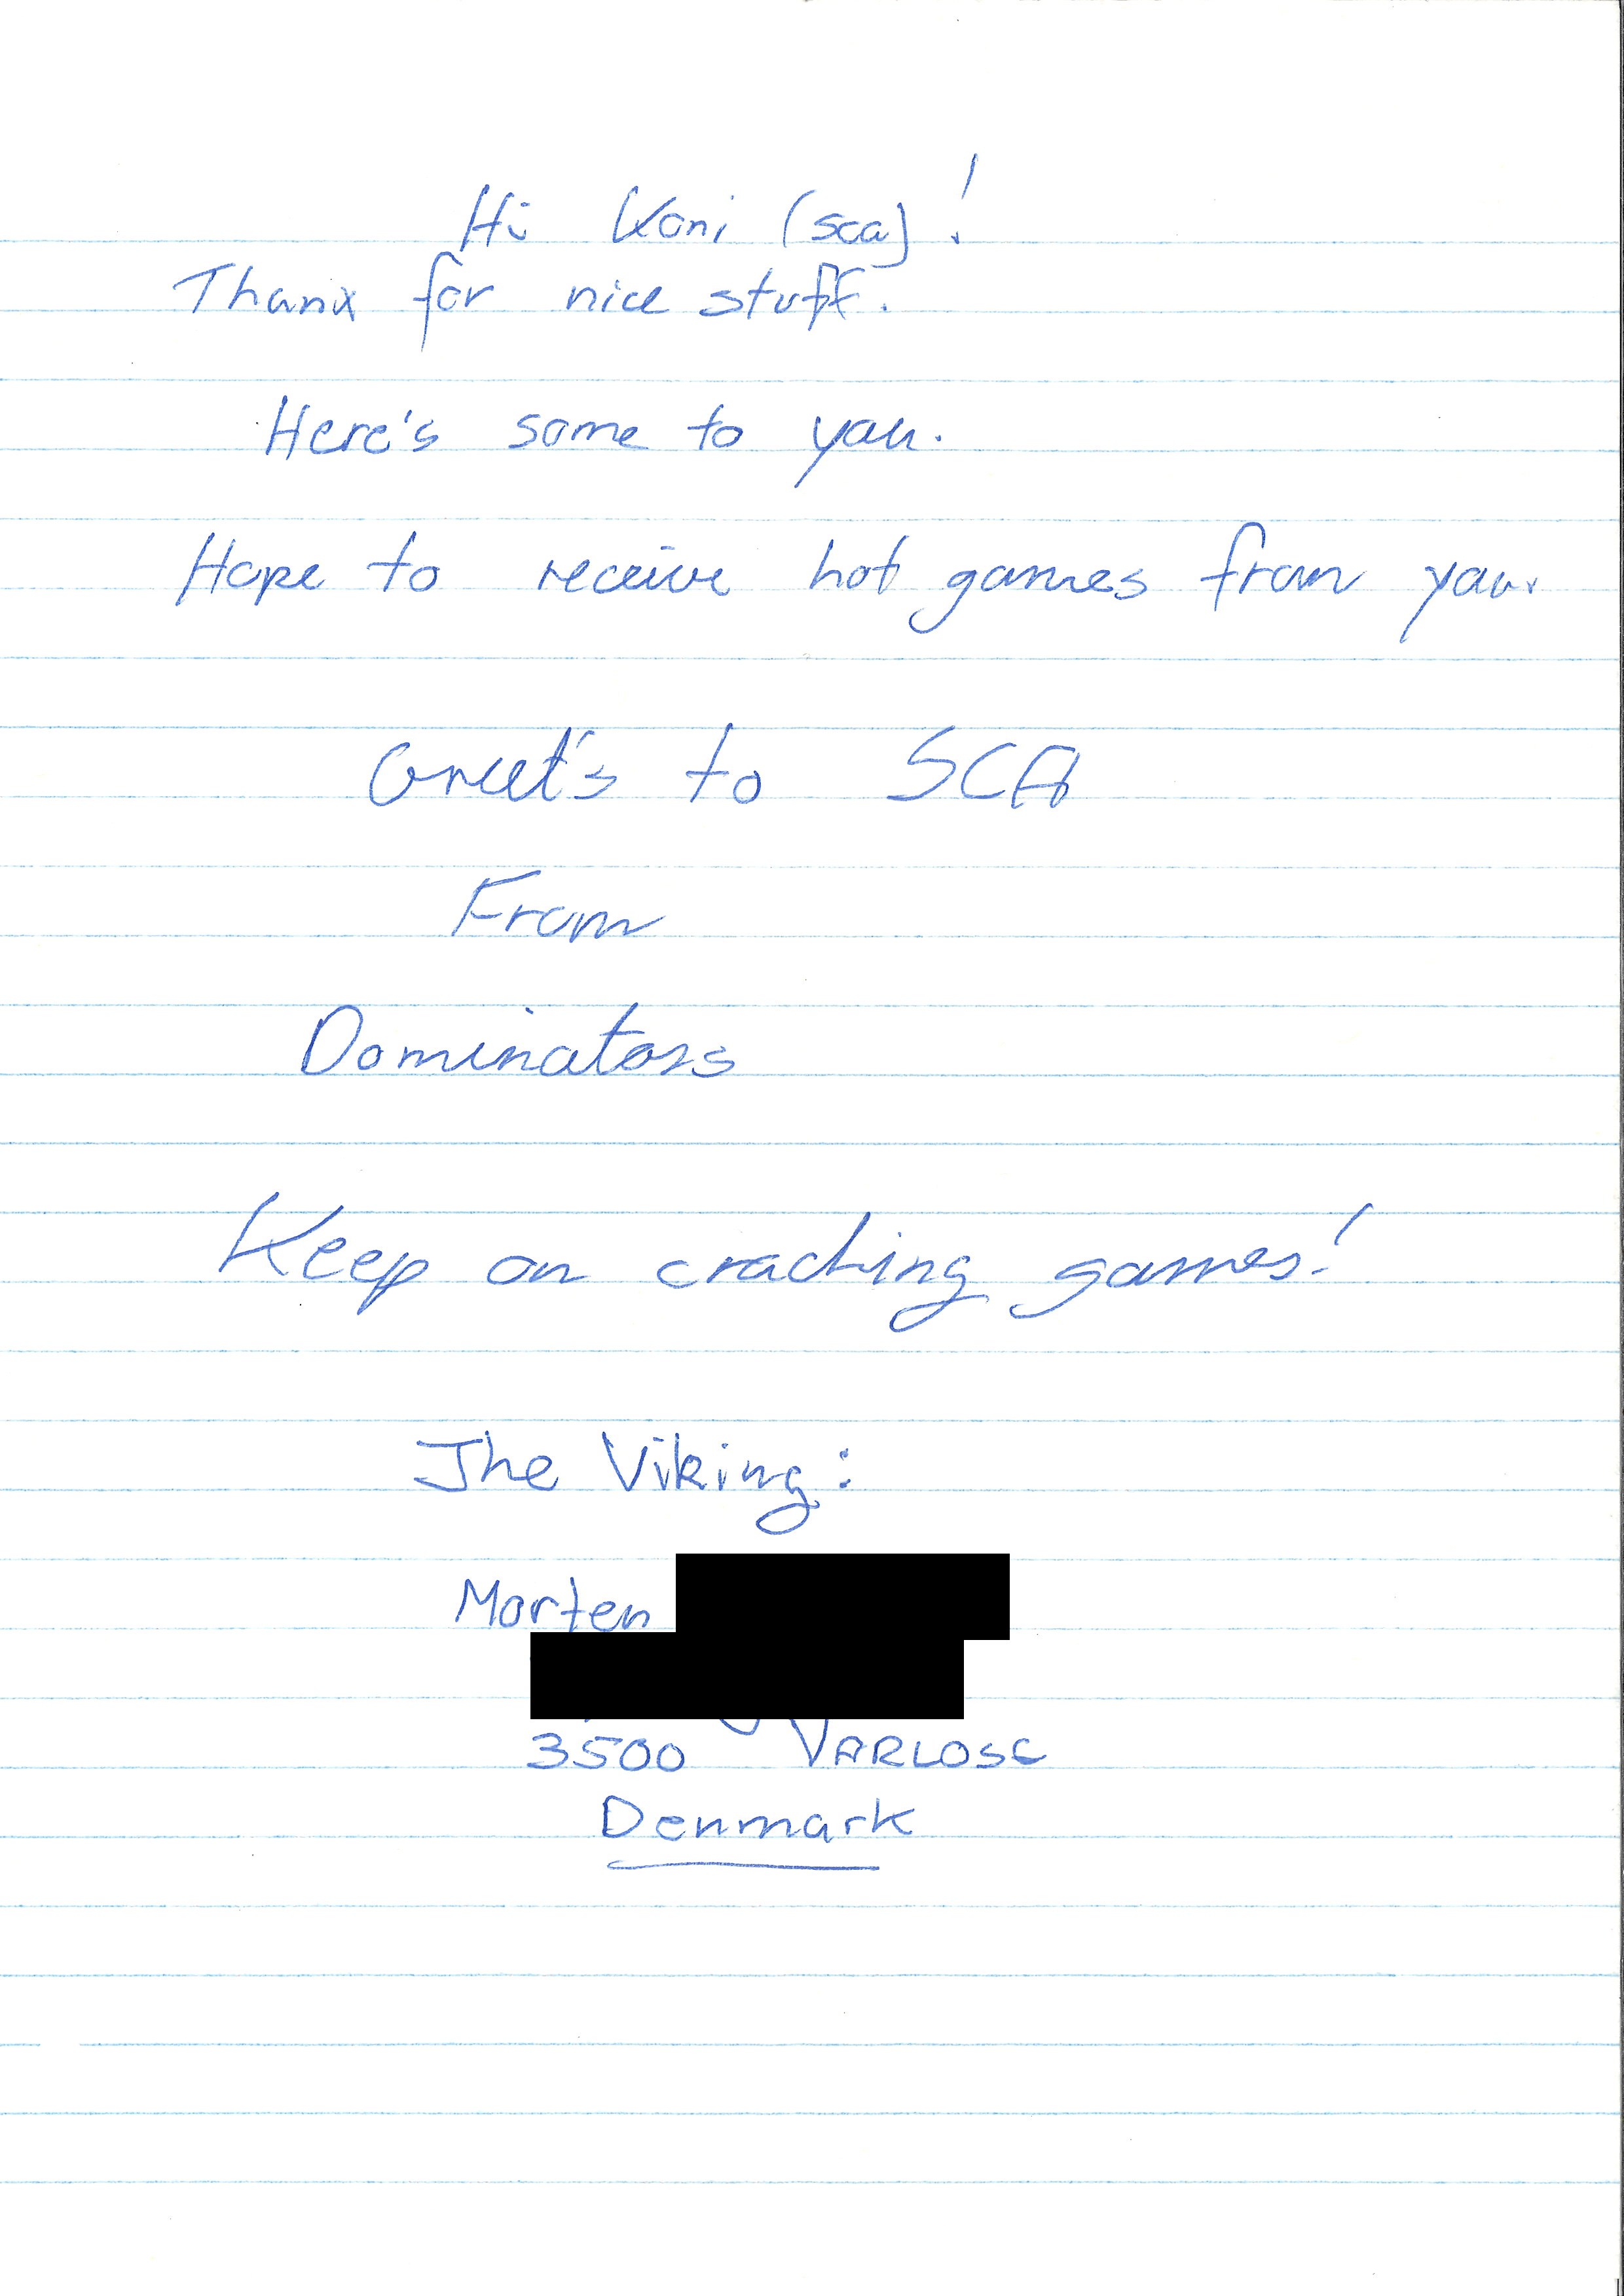 Hi Koni (sca)!
Thanx for nice stuff.
Here's some to you.
Hope to receive hot games from you.
Greet's to SCA
From
Dominators
Keep on cracking games!
The Viking:
Morten
3500 VARLOSE
Denmark